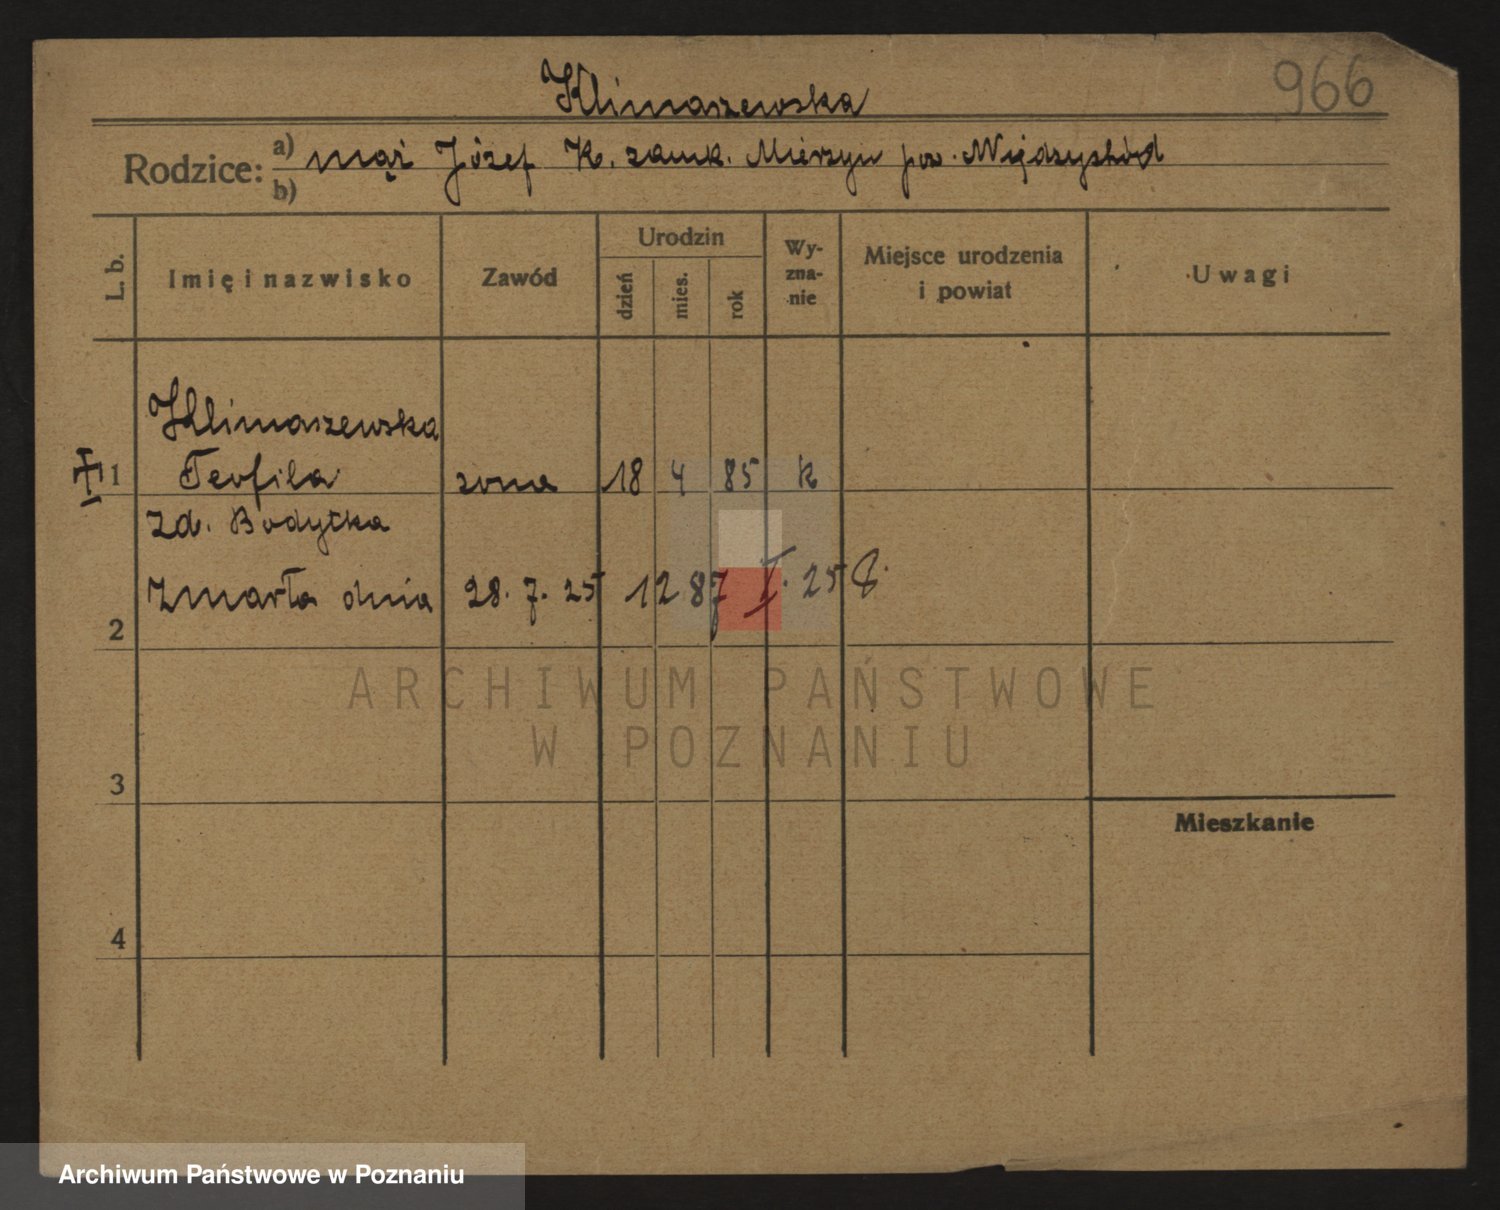 966
Klimaszewska
Rodzice: a) mąż Józef K. zamk. Mierzyn pow. Międzychód
b)
L. b. Imię i nazwisko Zawód Urodzin dzień mies. rok Wy-zna-nie Miejsce urodzenia i powiat Uwagi
Klimaszewska
1 Teofila żona 18 4 85 k
zd. Budytka
Zmarła dnia 28. 7. 25 1287 I. 25
2
ARCHIWUM PAŃSTWOWE
W POZNANIU
3
Mieszkanie
4
Archiwum Państwowe w Poznaniu